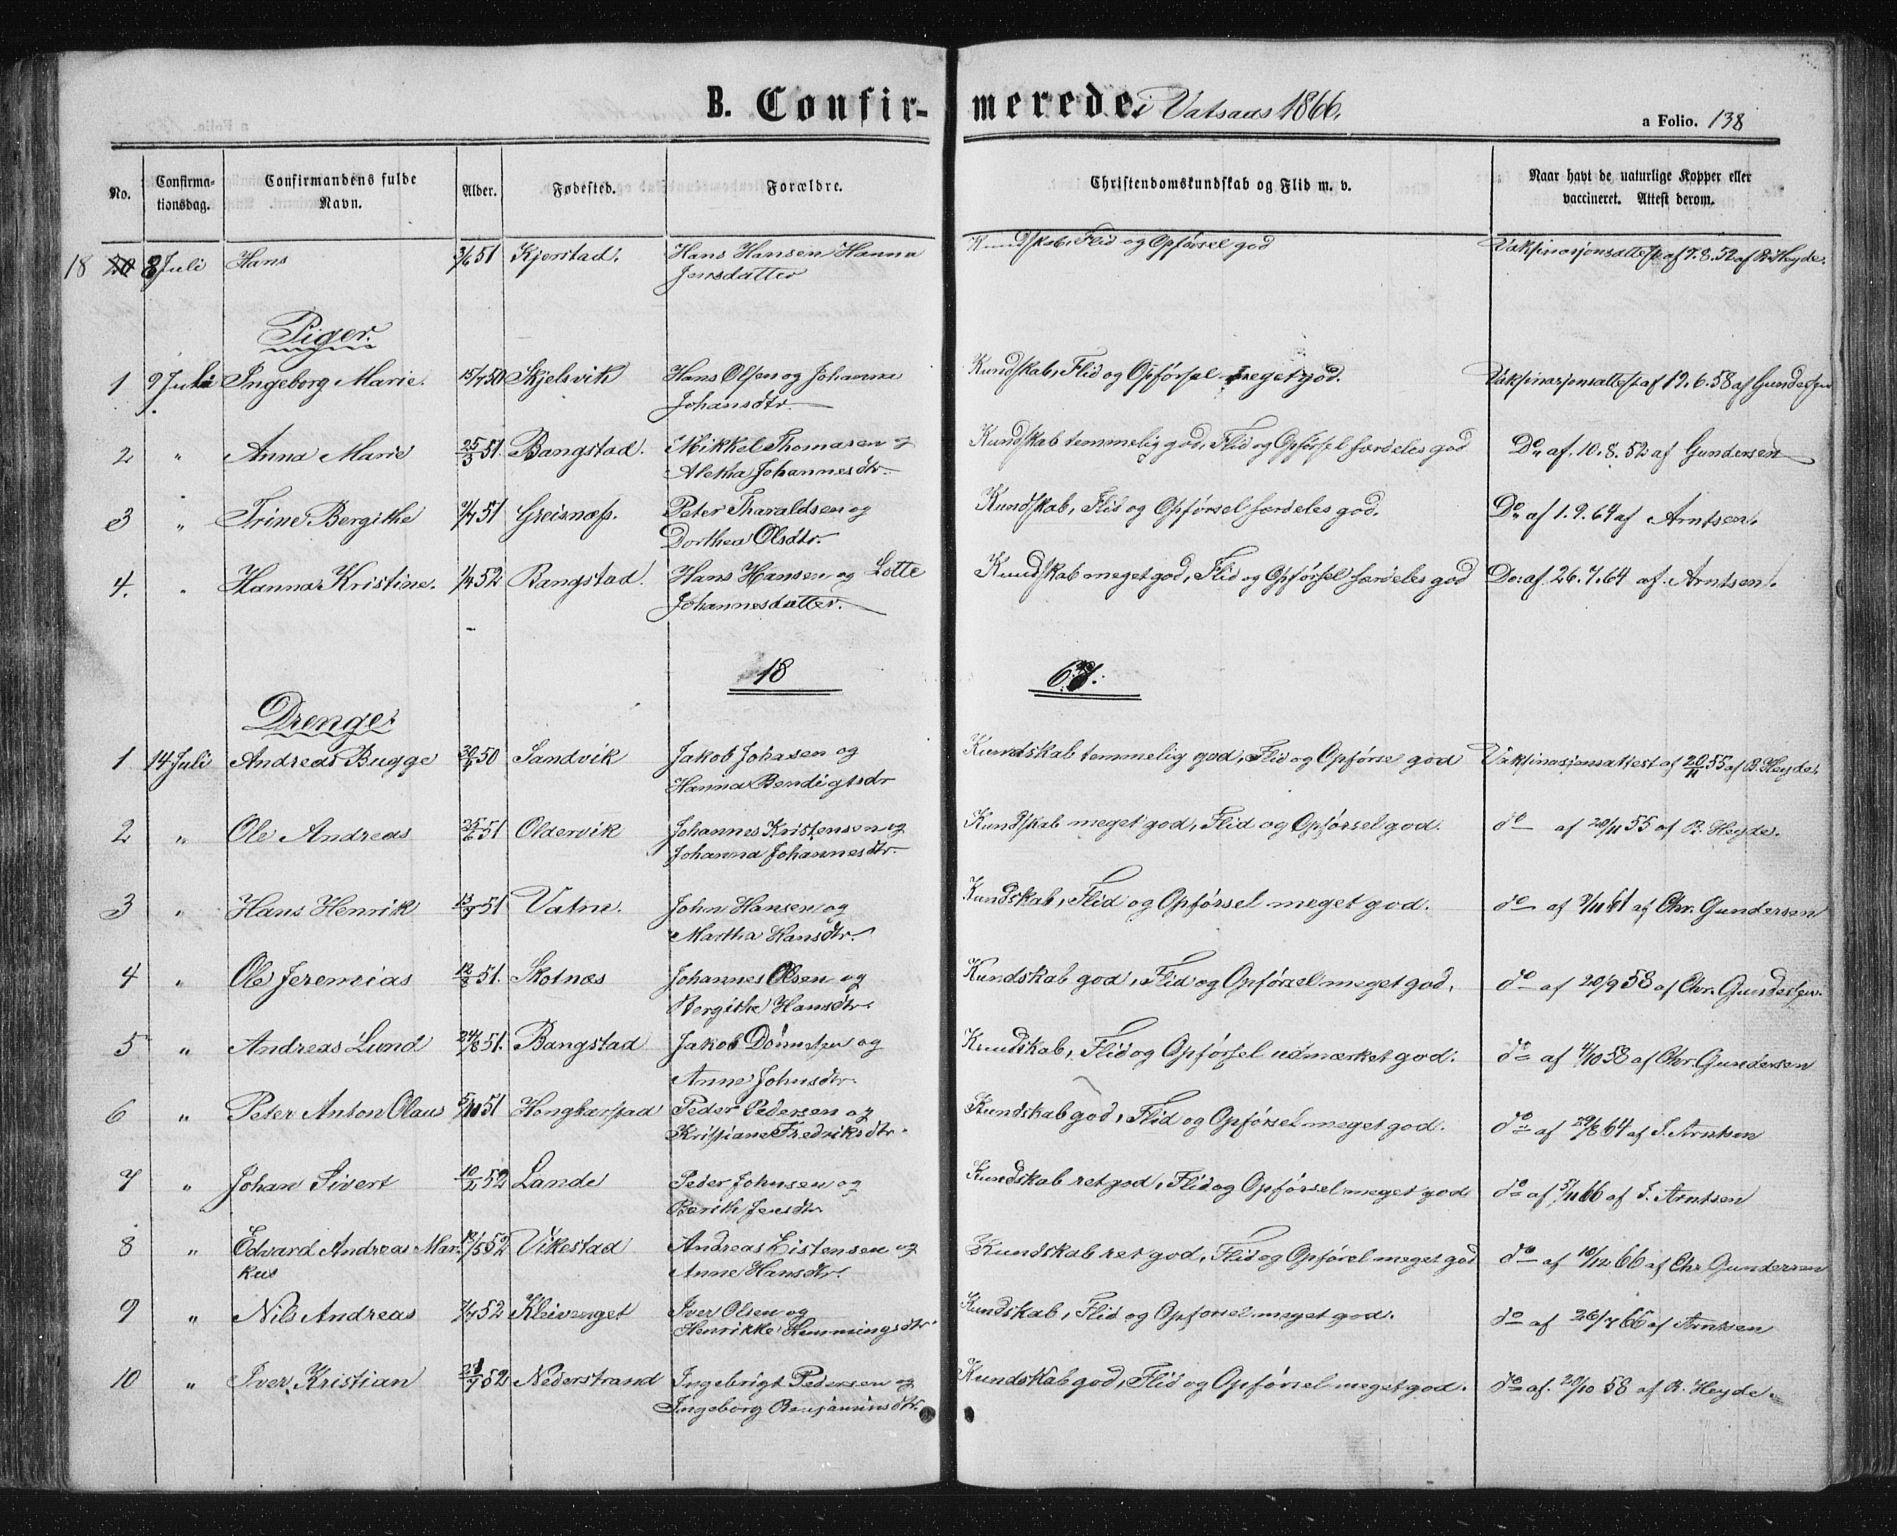 B. Confirmerede. i Vatsaas 1866.
a Folio. 138
No. Confirmationsdag. Confirmandens fulde Navn. Alder. Fødested. Forældre. Christendomskundskab og Flid m. v. Naar havt de naturlige Kopper eller vaccineret. Attest derom.
18 20 8 Juli Hans 3/6 51 Kjerstad. Hans Hansen Hanna Kundskab, Flid og Opførsel god Vaksinasjonsattest af 17.8.52 af R. Heyde.
Jensdatter
Piger.
1 9 Juli Ingeborg Marie. 15/7 50 Skjelsvik Hans Olsen og Johanna Kundskab, Flid og Opførsel meget god. Vaksinasjonsattest af 19.6.58 af Gundersen
Johansdtr.
2 " Anna Marie 25/3 51 Bangstad. Mikkel Thomasen og Kundskab temmelig god, Flid og Opførsel særdeles god Do af. 10.8.52 af Gundersen
Aletha Johannesdtr.
3 " Trine Bergithe /7 51 Greisnæss. Peter Tharaldsen og Kundskab, Flid og Opførsel særdeles god. Do af 1.9.64 af Arntsen.
Dorthea Olsdtr.
4. " Hanna Kristine. 1/4 52 Rangstad. Hans Hansen og Lotte Kundskab meget god, Flid og Opførsel særdeles god Do: af 26.7.64 af. Arntsen.
Johannesdatter.
18 67.
Drenge.
1 14 Juli Andreas Bugge 50 Sandvik Jakob Johasen og Kundskab temmelig god, Flid og Opførse god Vaksinasjonsattest af 20/11 55 af R. Heyde.
Hanna Bendigtsdr
2 " Ole Andreas 25/6 51 Oldervik Johannes Kristensen og Kundskab meget god, Flid og Opførsel god. do af 20/11 55 af R. Heyde.
Johanna Johannesdtr.
3 " Hans Henrik 13/7 51 Vatne. John Hansen og Kundskab, Flid og Opførsel meget god. do af /11 61 af Chr. Gundersen
Martha Hansdtr.
4 " Ole Jeremias 12/8 51. Skotnæs Johannes Olsen og Kundskab god, Flid og Opførsel meget god. do af 20/9 58 af Chr. Gundersen.
Bergithe Hansdtr.
5 " Andreas Lund 24/8 51. Bangstad Jakob Dønnesen og Kundskab, Flid og Opførsel udmærket god. do af 4/10 58 af Chr. Gundersen
Anne Johnsdtr.
6 " Peter Anton Olaus 5/10 51 Peder Pedersen og Kundskab god, Flid og Opførsel meget god. do af 29/8 64 af J. Arntsen
Kristiane Fredriksdtr.
7 " Johan Sivert 10/2 52 Lande Peder Johnsen og Kundskab ret god, Flid og Opførsel meget god do af 5/11 66 af J. Arntsen
Berith Jensdtr.
8 " Edvard Andreas Mar- 12/5 52 Vikestad Andreas Eistensen og Kundskab ret god, Flid og Opførel meget god do af 10/12 66 af Chr. Gundersen
kus Anne Hansdtr.
9 " Nils Andreas 7/7 52 Kleivenget Iver Olsen og Kundskab, Flid og Opførsel meget god. do af 26/7 66 af Arntsen
Henrikke Hemmingsdtr.
10 " Iver Kristian 52 Nederstrand Ingebrigt Pedersen og Kundskab god, Flid og Opførsel meget god. do af. 20/10 58 af R. Heyde.
Ingeborg Benjaminsdtr.